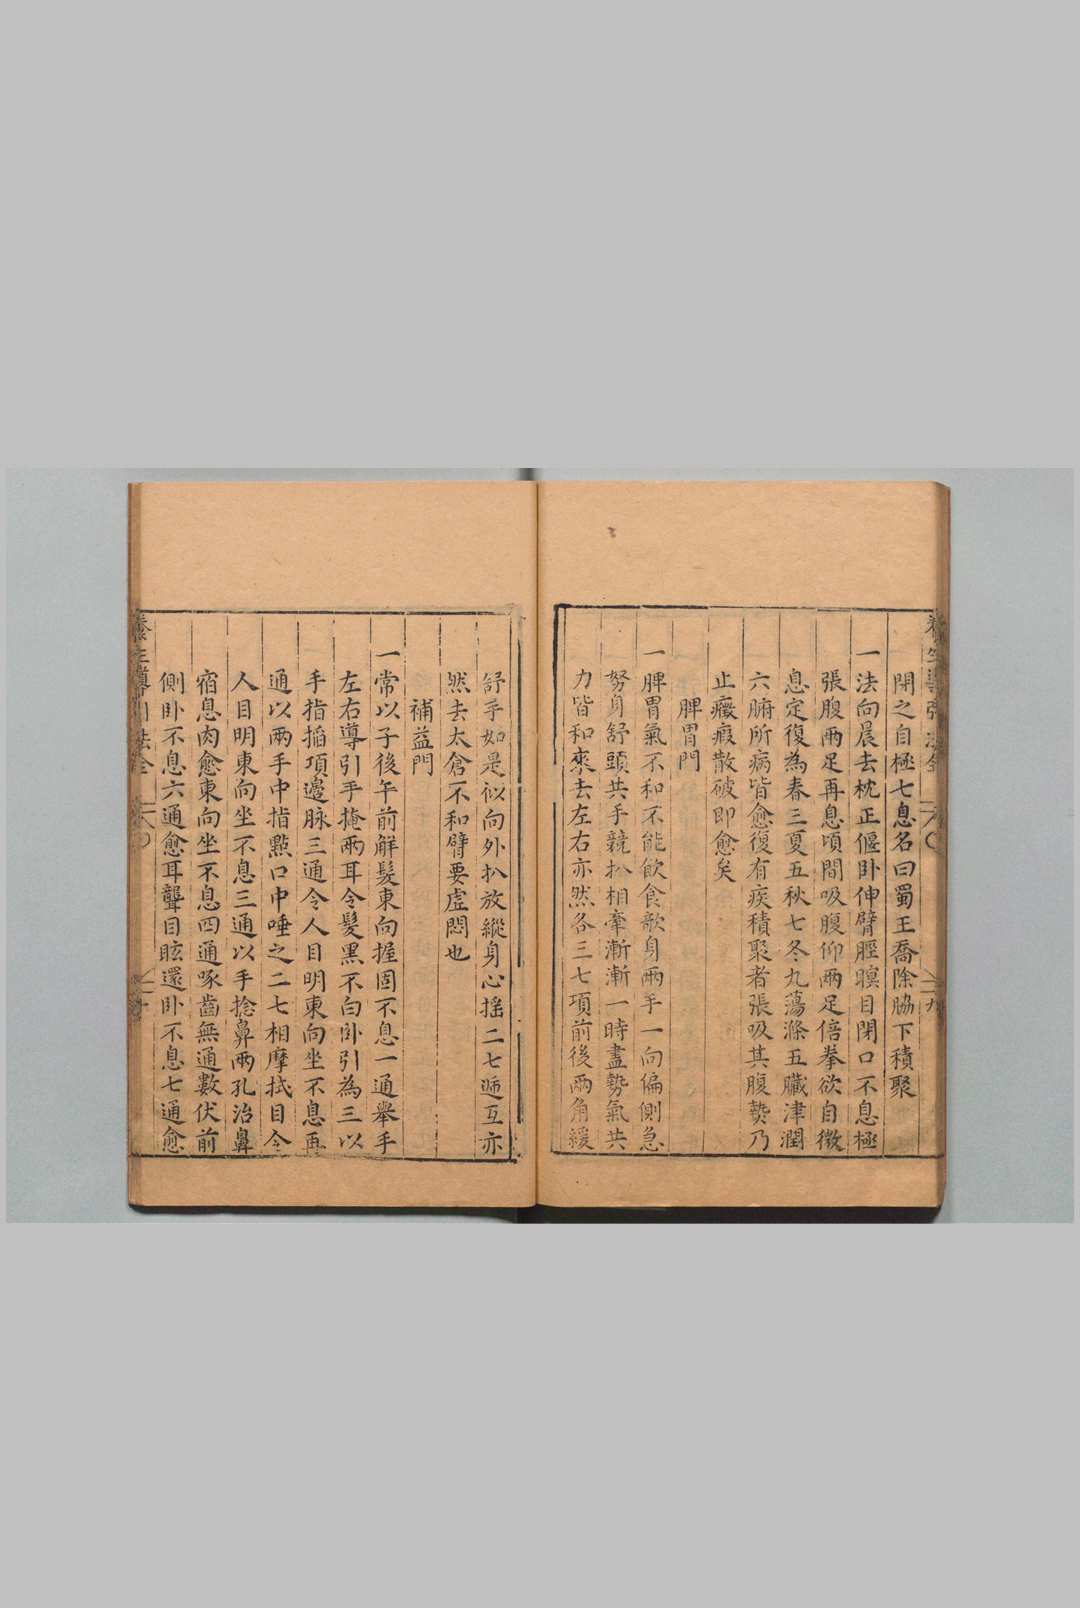 閉之自極七息名曰蜀王喬除脇下積聚
一法向晨去枕正偃卧伸臂脛瞑目閉口不息極
張腹兩足再息頃間吸腹仰兩足倍拳欲自微
息定復為春三夏五秋七冬九蕩滌五臟津潤
六腑所病皆愈復有疾積聚者張吸其腹熱乃
止癥瘕散破即愈矣
脾胃門
一脾胃氣不和不能飲食欹身兩手一向偏側急
努身舒頭共手競扒相牽漸漸一時盡勢氣共
力皆和來去左右亦然各三七項前後兩角緩
舒手如是似向外扒放縱身心搖二七遞互亦
然去太倉不和臂要虛悶也
補益門
一常以子後午前解髮東向握固不息一通舉手
左右導引手掩兩耳令髮黑不白卧引為三以
手指掐項邊脉三通令人目明東向坐不息再
通以兩手中指點口中唾之二七相摩拭目令
人目明東向坐不息三通以手捻鼻兩孔治鼻
宿息肉愈東向坐不息四通啄齒無通數伏前
側卧不息六通愈耳聾目眩還卧不息七通愈